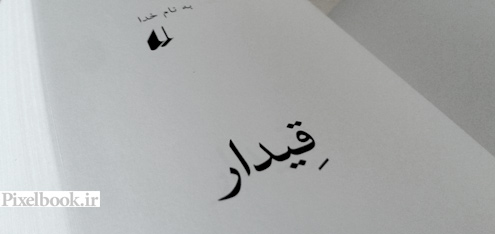 به نام خدا
قِیدار
Pixelbook.ir